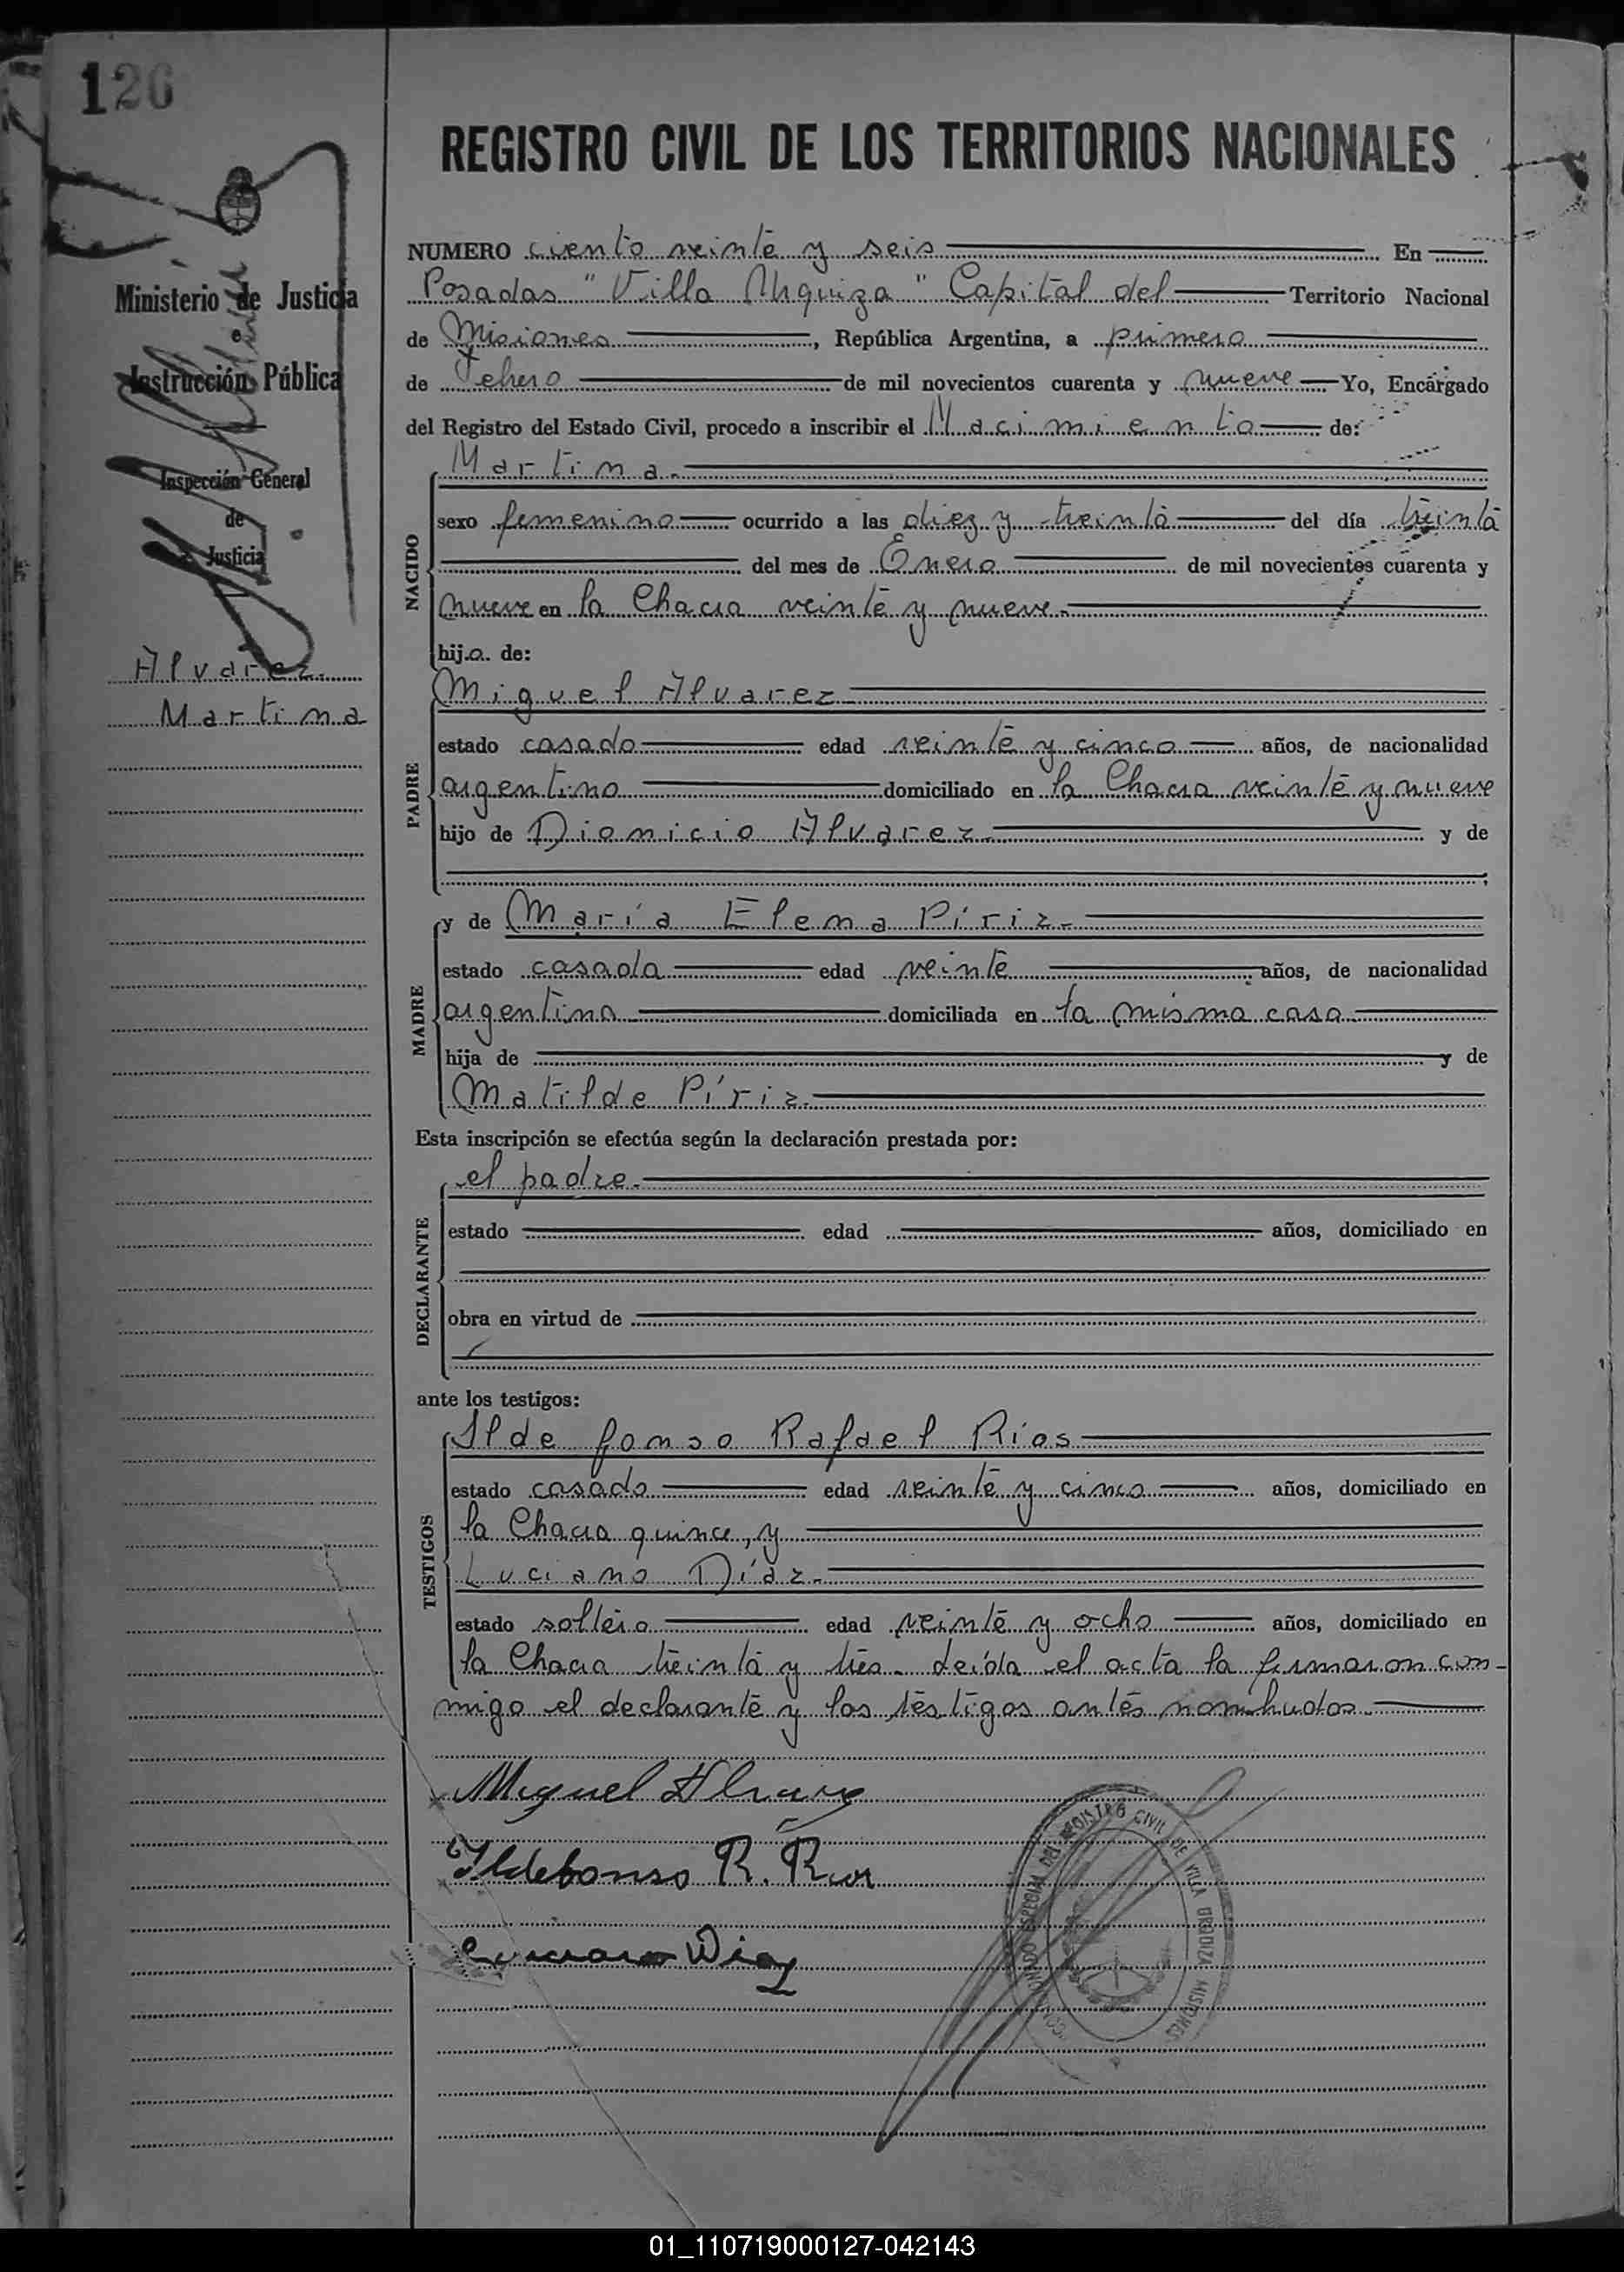 126
REGISTRO CIVIL DE LOS TERRITORIOS NACIONALES
Ministerio de Justicia
e
Instrucción Pública
Inspección General
de
Justicia
Alvarez
Martina
NUMERO ciento veinte y seis En
Posadas "Villa Urquiza" Capital del Territorio Nacional
de Misiones, República Argentina, a primero
de Febrero de mil novecientos cuarenta y nueve Yo, Encargado
del Registro del Estado Civil, procedo a inscribir el Nacimiento de:
Martina.
NACIDO
sexo femenino ocurrido a las diez y treinta del día treinta
del mes de Enero de mil novecientos cuarenta y
nueve en la Chacra veinte y nueve.
hija de:
Miguel Alvarez
PADRE
estado casado edad veinte y cinco años, de nacionalidad
argentino domiciliado en la Chacra veinte y nueve
hijo de Dionicio Alvarez y de
;
y de María Elena Píriz.
MADRE
estado casada edad veinte años, de nacionalidad
argentina domiciliada en la misma casa.
hija de y de
Matilde Píriz.
Esta inscripción se efectúa según la declaración prestada por:
el padre.
DECLARANTE
estado edad años, domiciliado en
obra en virtud de
ante los testigos:
Ildefonso Rafael Ríos
TESTIGOS
estado casado edad veinte y cinco años, domiciliado en
la Chacra quince, y
Luciano Díaz.
estado soltero edad veinte y ocho años, domiciliado en
la Chacra treinta y tres. Leída el acta la firmaron con-
migo el declarante y los testigos antes nombrados.
Miguel Alvarez
Ildefonso R. Rios
Luciano Diaz
COMISIONADO ESPECIAL DEL REGISTRO CIVIL DE VILLA URQUIZA MISIONES
01_110719000127-042143